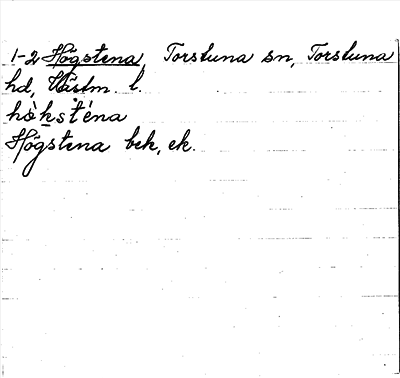 1-2 Högstena, Torstuna sn, Torstuna
hd, Västm. l.
hø̀kste̍na
Högstena bek, ek.